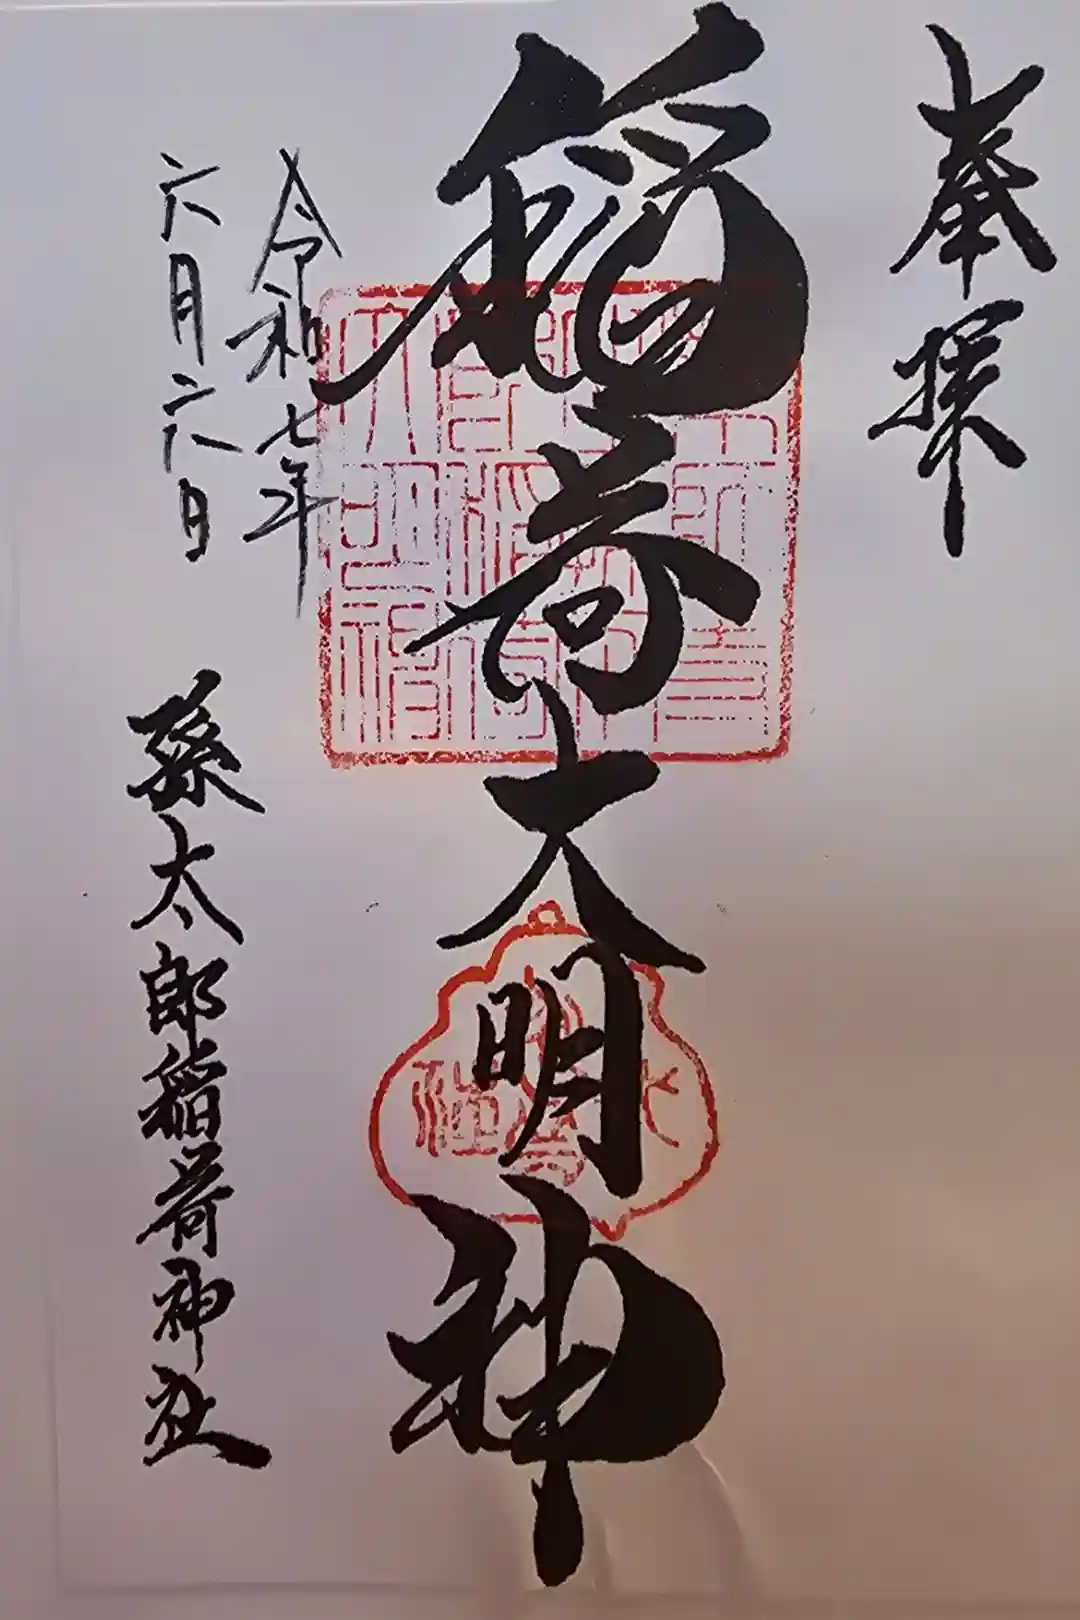 奉拝
稲荷大明神
令和七年
六月二八日
孫太郎稲荷神社